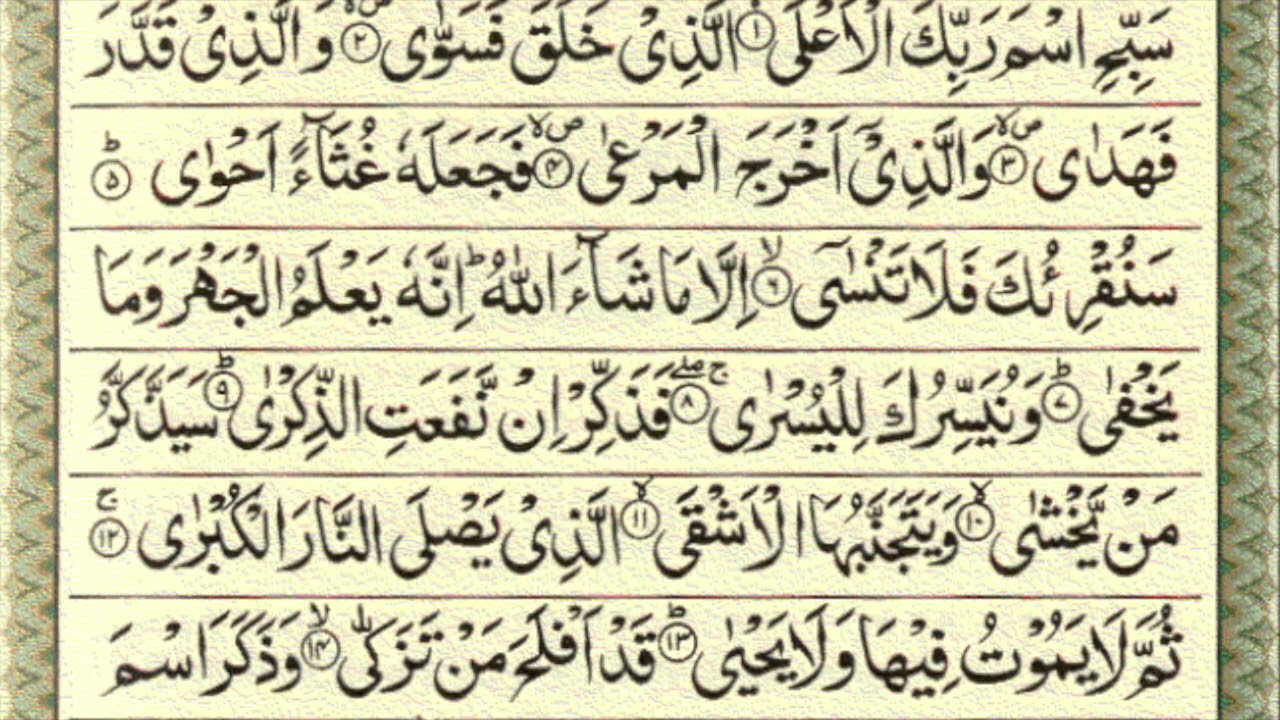 سَبِّحِ اسْمَ رَبِّكَ الْاَعْلَى ۙ﴿۱﴾ الَّذِیْ خَلَقَ فَسَوّٰی ۪ۙ﴿۲﴾ وَ الَّذِیْ قَدَّرَ
فَهَدٰی ۪ۙ﴿۳﴾ وَالَّذِیْۤ اَخْرَجَ الْمَرْعٰی ۪ۙ﴿۴﴾ فَجَعَلَهٗ غُثَآءً اَحْوٰی ؕ﴿۵﴾
سَنُقْرِئُكَ فَلَا تَنْسٰۤی ۙ﴿۶﴾ اِلَّا مَا شَآءَ اللّٰهُ ؕ اِنَّهٗ یَعْلَمُ الْجَهْرَ وَمَا
یَخْفٰی ؕ﴿۷﴾ وَنُیَسِّرُكَ لِلْیُسْرٰی ۚۖ﴿۸﴾ فَذَكِّرْ اِنْ نَّفَعَتِ الذِّكْرٰی ؕ﴿۹﴾ سَیَذَّكَّرُ
مَنْ یَّخْشٰی ۙ﴿۱۰﴾ وَیَتَجَنَّبُهَا الْاَشْقَی ۙ﴿۱۱﴾ الَّذِیْ یَصْلَی النَّارَ الْكُبْرٰی ۚ﴿۱۲﴾
ثُمَّ لَا یَمُوْتُ فِیْهَا وَلَا یَحْیٰی ؕ﴿۱۳﴾ قَدْ اَفْلَحَ مَنْ تَزَكّٰی ۙ﴿۱۴﴾ وَذَكَرَ اسْمَ